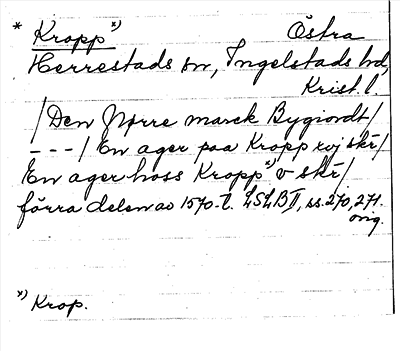 * Kropp x) Östra
Herrestads sn, Ingelstads hd,
Krist. l.
/Den Nørre marck Bygiordt/
---/ En ager paa Kropp xvj skr/
En ager hoss Kropp x) v skr/
förra delen av 1570-t. LSLB II, ss. 270, 271.
orig.
x) Krop.